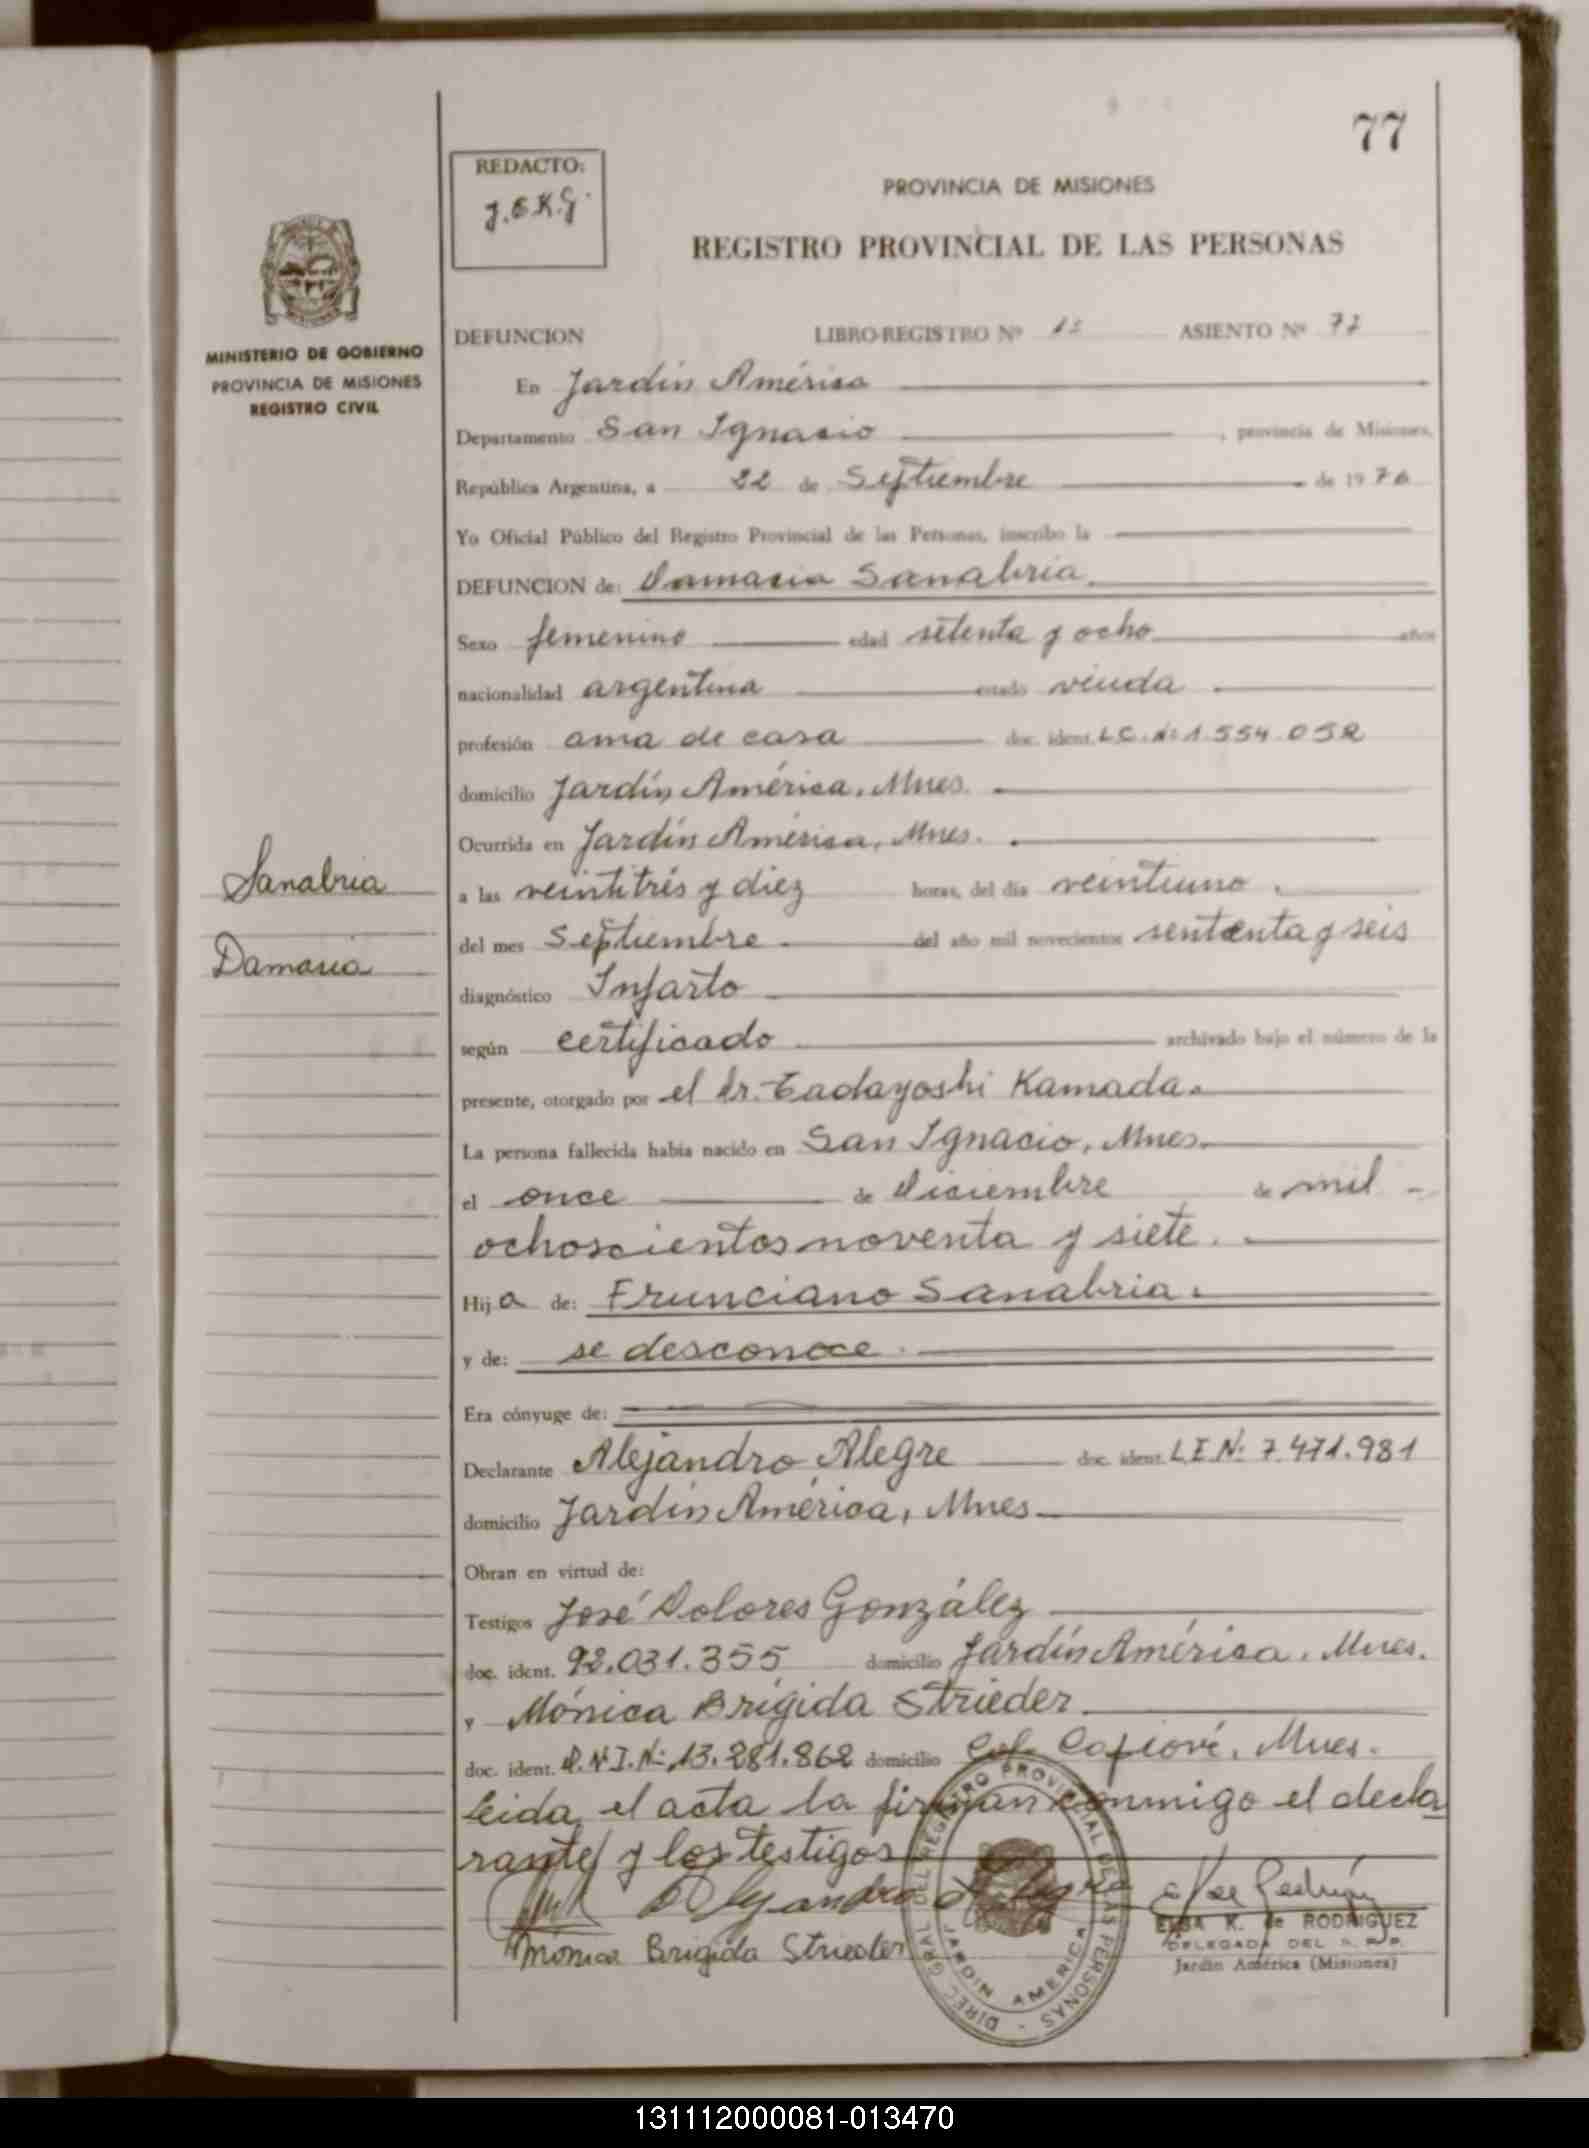 77
REDACTO:
J.E.K.G.
PROVINCIA DE MISIONES
REGISTRO PROVINCIAL DE LAS PERSONAS
MINISTERIO DE GOBIERNO
PROVINCIA DE MISIONES
REGISTRO CIVIL
DEFUNCION LIBRO-REGISTRO Nº ASIENTO Nº
En Jardín América
Departamento San Ignacio, provincia de Misiones,
República Argentina, a 22 de Septiembre de 1976
Yo Oficial Público del Registro Provincial de las Personas, inscribo la
DEFUNCION de: Damasia Sanabria
Sexo femenino edad setenta y ocho años
nacionalidad argentina estado viuda
profesión ama de casa doc. ident. L.C. Nº 1.554.052
domicilio Jardín América, Mnes.
Ocurrida en Jardín América, Mnes.
Sanabria
Damasia
a las veintitrés y diez horas, del día veintiuno
del mes Septiembre del año mil novecientos sententa y seis
diagnóstico Infarto
según certificado archivado bajo el número de la
presente, otorgado por el Dr. Tadayoshi Kamada.
La persona fallecida había nacido en San Ignacio, Mnes.
el once de Diciembre de mil
ochoscientos noventa y siete.
Hija de: Frunciano Sanabria.
y de: se desconoce.
Era cónyuge de:
Declarante Alejandro Alegre doc. ident. L.E.Nº 7.471.981
domicilio Jardín América, Mnes
Obran en virtud de:
Testigos José Dolores González
doc. ident. 92.031.355 domicilio Jardín América, Mnes.
y Mónica Brígida Strieder
doc. ident. D.N.I.Nº 13.281.862 domicilio Capioví, Mnes.
leida el acta la firman conmigo el decla
rante y los testigos
Alejandro Alegre
Mónica Brígida Strieder
DIREC. GRAL. DEL REGISTRO PROVINCIAL DE LAS PERSONAS
JARDIN AMERICA
ELBA K. de RODRIGUEZ
DELEGADA DEL R.P.P.
Jardín América (Misiones)
131112000081-013470